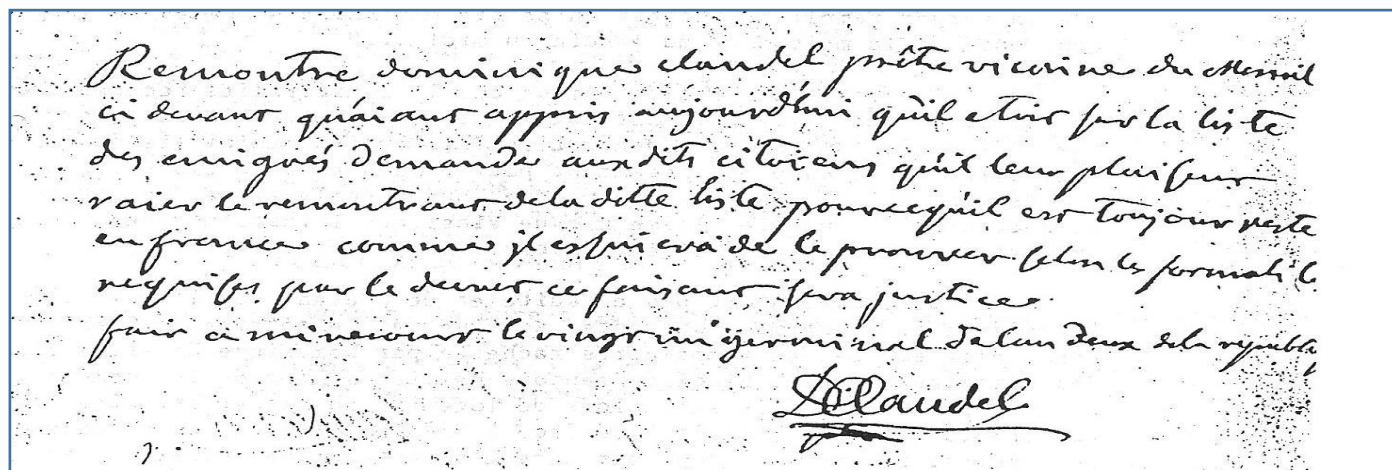 Remontre dominique claudel prêtre vicaire du Mesnil
ci devant qu'aiant appris aujourd'hui qu'il etoit sur la liste
des emigrés demande auxdits citoiens qu'il leur plaise
raier le remontrant de la ditte liste pourcequ'il est toujour resté
en france comme jl essuiera de le prouver selon les formali
requises par le decret ce faisant fera justice
fait a mirecourt le vingt un germinal de lan deux de la republi
DClaudel